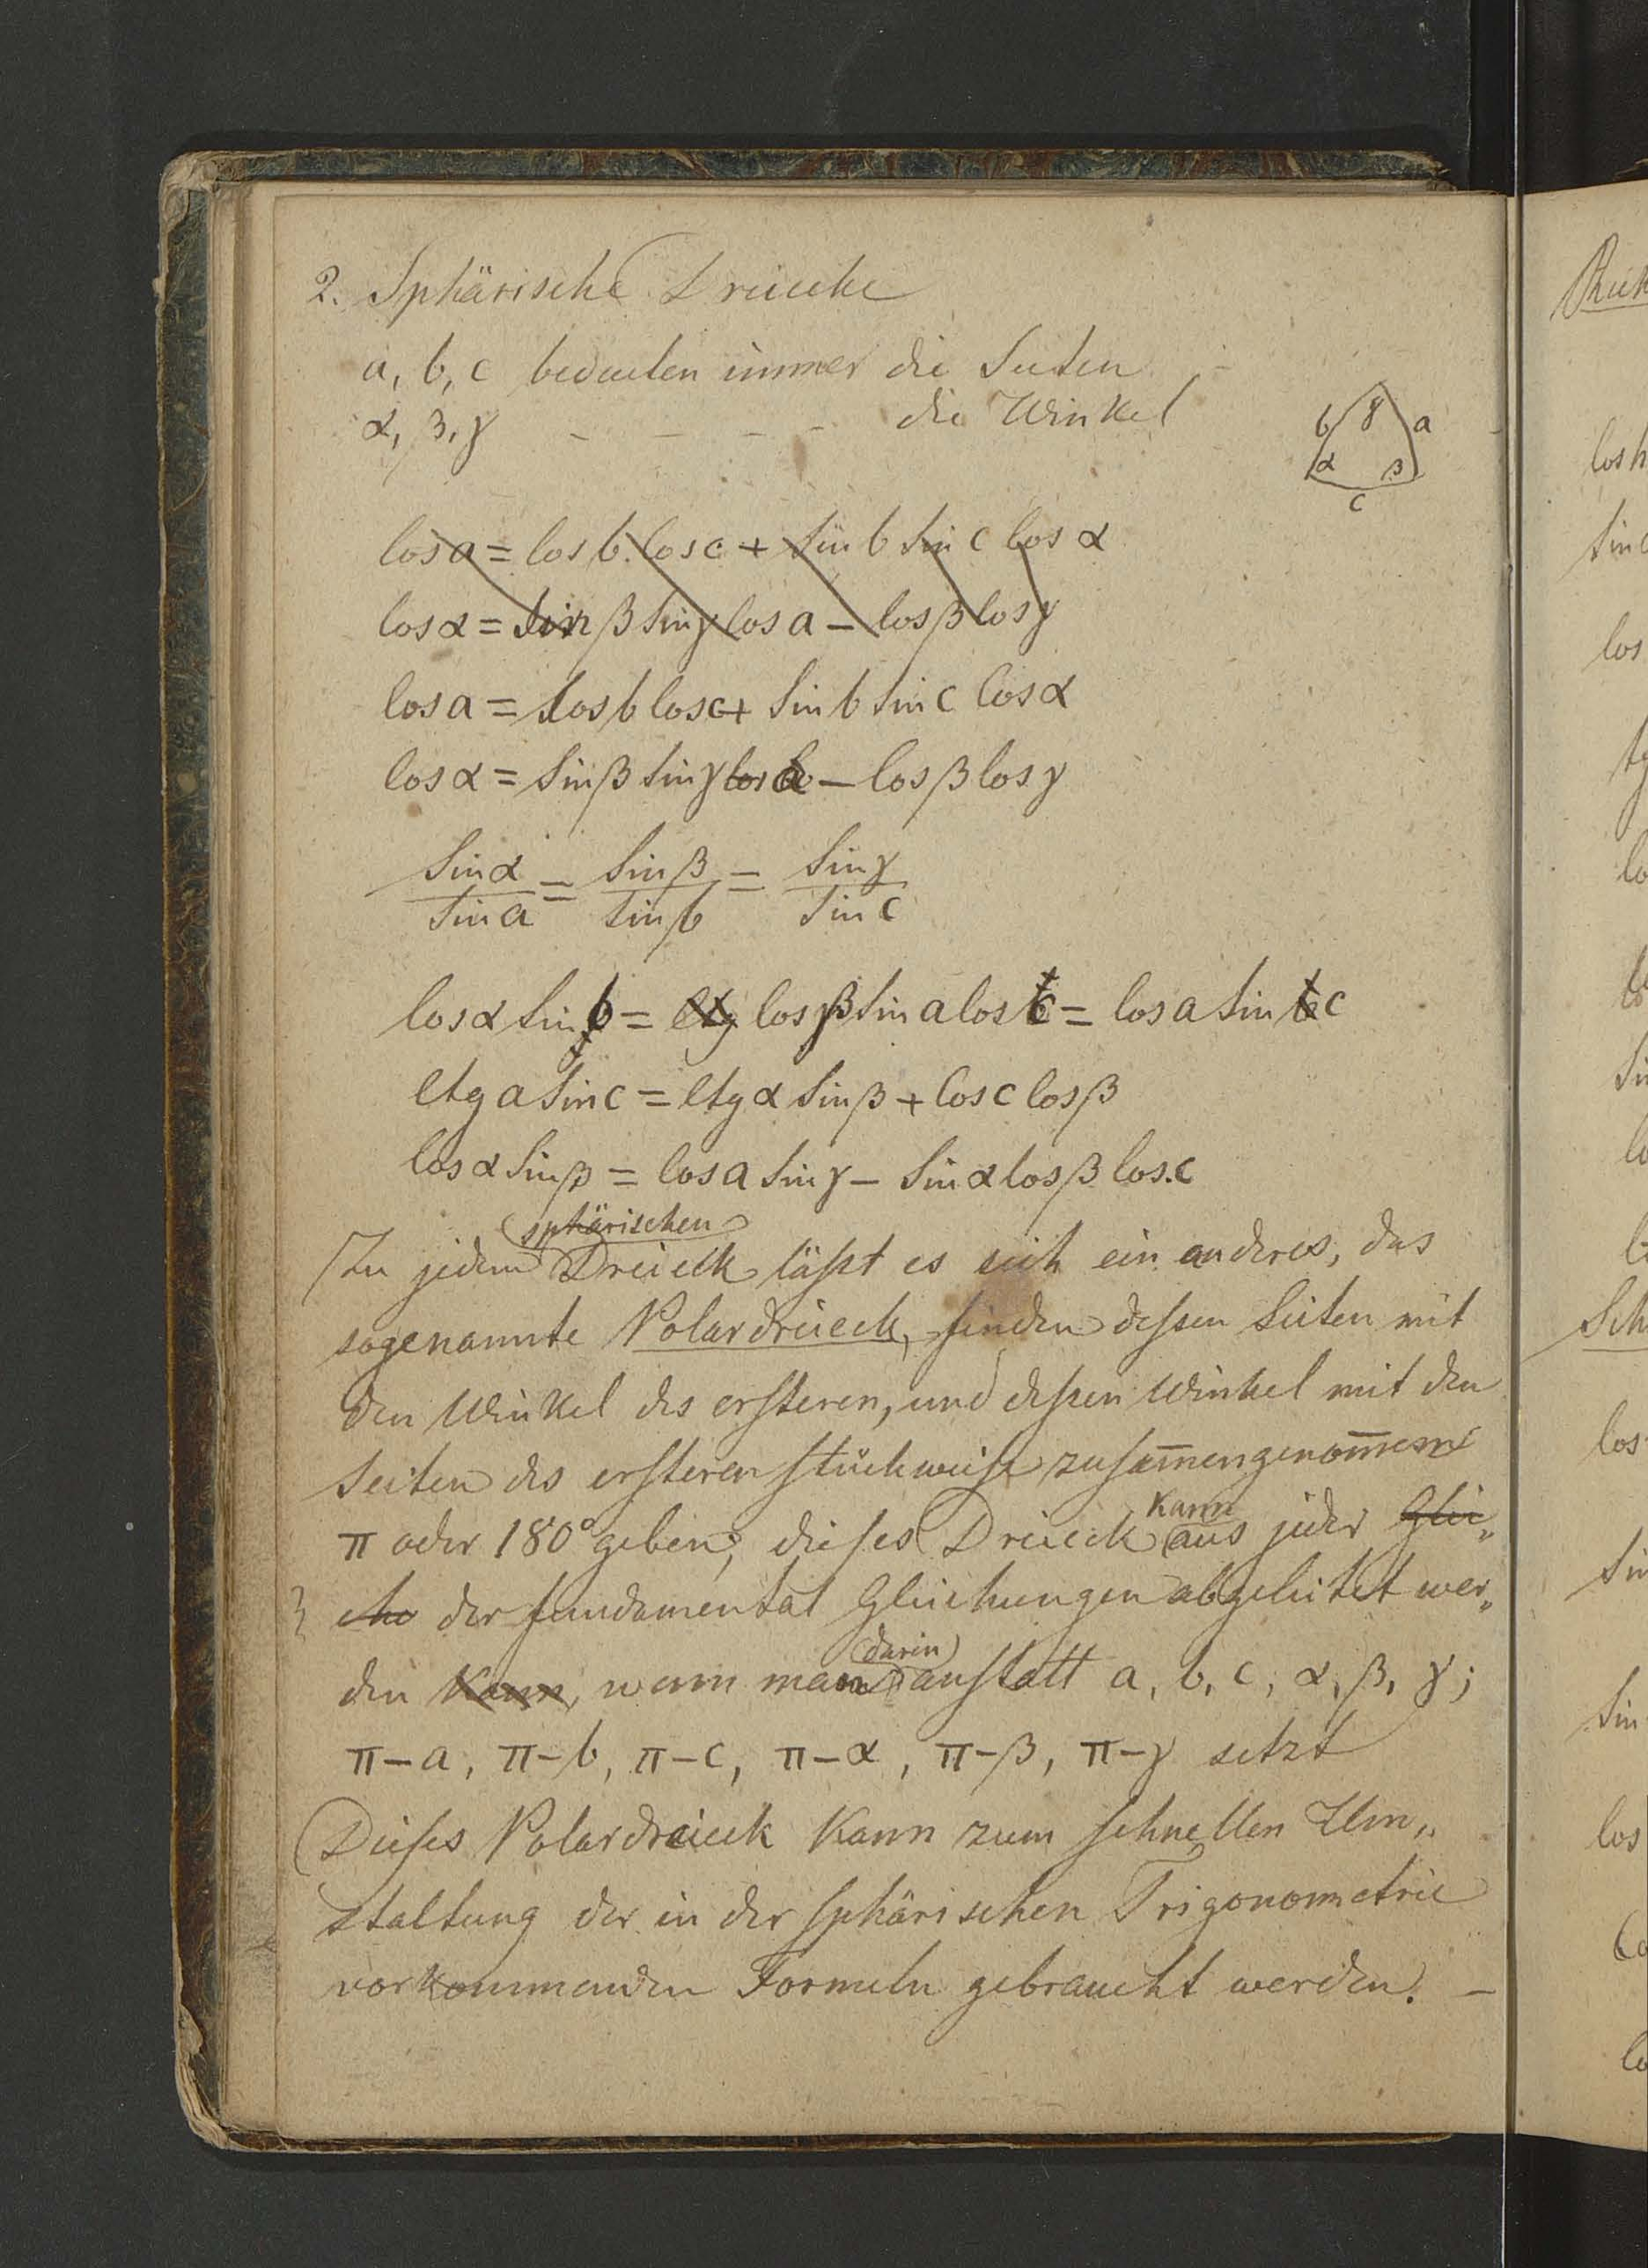 2. Sphärische Dreiecke
a, b, c bedeuten immer die Seiten
α, β, γ - - - - die Winkel
b γ a
α β
c
Cos a = Cos b. Cos c + Sin b Sin c Cos α
Cos α = Sin β Sin γ Cos a - Cos β Cos γ
Cos a = Cos b Cos c + Sin b Sin c Cos α
Cos α = Sin β Sin γ Cos a - Cos β Cos γ
Sin α / Sin a = Sin β / Sin b = Sin γ / Sin c
Cos α Sin b = Ctg Cos β Sin a Cos c = Cos a Sin c
Ctg a Sin c = Ctg α Sin β + Cos c Cos β
Cos α Sin β = Cos a Sin γ - Sin α Cos β Cos. c
sphärischen
Zu jedem Dreieck läßt es sich ein anderes, das
sogenannte Polardreieck, finden dessen Seiten mit
den Winkel des ersteren, und dessen Winkel mit den
Seiten des ersteren stückweise zusam̅engenom̅en
kann
π oder 180° geben; dieses Dreieck aus jeder Glei„
che der fundamental Gleichungen abgeleitet wer„
darin
den kann, wenn man anstatt a, b, c, α, β, γ;
π-a, π-b, π-c, π-α, π-β, π-γ setzt
Dieses Polardreieck kann zum schnellen Um„
staltung der in der sphärischen Trigonometrie
vorkommenden Formeln gebraucht werden. -